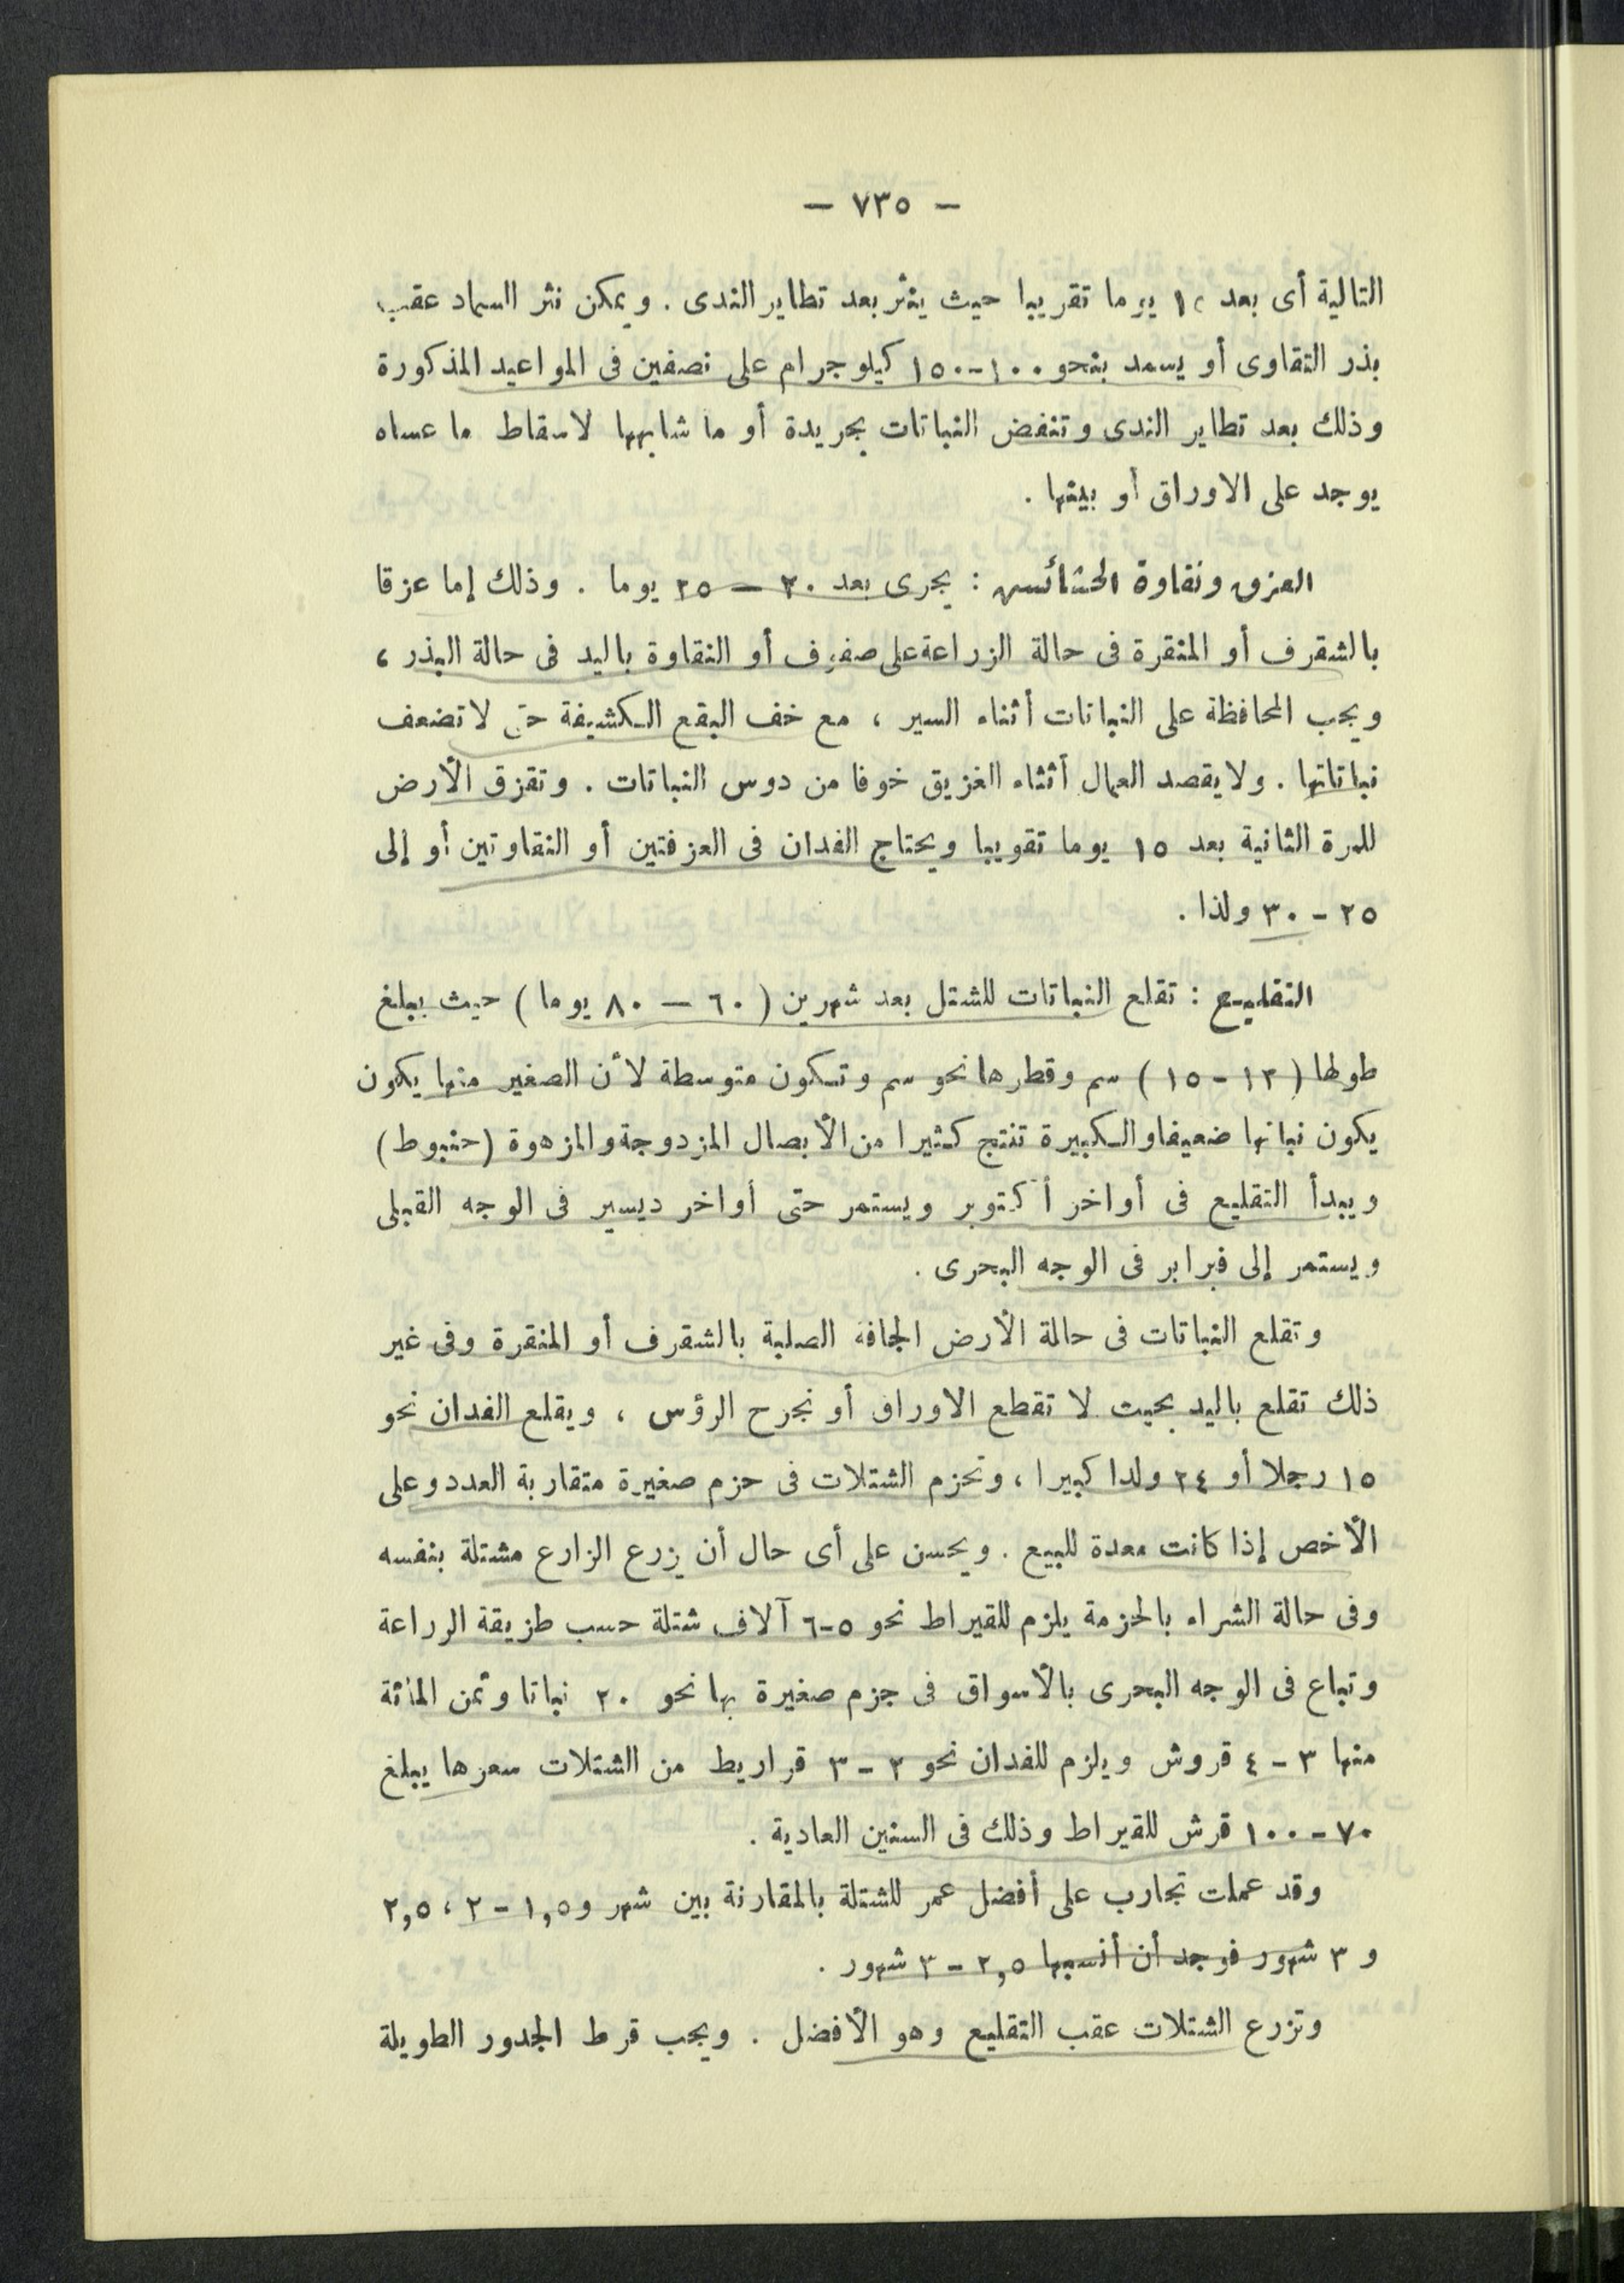 — ٧٣٥ —
التالية أى بعد يوما تقريبا حيث ينثر بعد تطاير الندى . ويمكن نثر السماد عقب
بذر التقاوى أو يسمد بنحو ١٠٠-١٥٠ كيلو جرام على نصفين فى المواعيد المذكورة
وذلك بعد تطاير الندى وتنفض النباتات بجريدة أو ما شابهها لاسقاط ما عساه
يوجد على الاوراق أو بينها .
العزق ونقاوة الحشائش : يجرى بعد ٢٠ — ٢٥ يوما . وذلك إما عزقا
بالشقرف أو المنقرة فى حالة الزراعة على صفوف أو النقاوة باليد فى حالة البذر ،
ويجب المحافظة على النباتات أثناء السير ، مع خف البقع الكشيفة حتى لا تضعف
نباتاتها . ولا يقصد العمال أثناء الغزيق خوفا من دوس النباتات . وتقزق الأرض
للمرة الثانية بعد ١٥ يوما تقويبا ويحتاج الفدان فى العزفتين أو النقاوتين أو إلى
٢٥ - ٣٠ ولذا .
التقليع : تقلع النباتات للشتل بعد شهرين ( ٦٠ — ٨٠ يوما ) حيث يبلغ
طولها ( ١٢ - ١٥ ) سم وقطرها نحو سم وتكون متوسطة لأن الصغير منها يكون
يكون نباتها ضعيفا والكبيرة تنتج كثيرا من الأبصال المزدوجة والمزهوة (حنبوط)
ويبدأ التقليع فى أواخر أكتوبر ويستمر حتى أواخر ديسبر فى الوجه القبلى
ويستمر إلى فبرابر فى الوجه البحرى .
وتقلع النباتات فى حالة الأرض الجافة الصلبة بالشقرف أو المنقرة وفى غير
ذلك تقلع باليد بحيت لا تقطع الاوراق أو نجرح الرؤس ، ويقلع الفدان نحو
١٥ رجلا أو ٢٤ ولدا كبيرا ، وتحزم الشتلات فى حزم صغيرة متقاربة العدد وعلى
الأخص إذا كانت معدة للبيع . ويحسن على أى حال أن يزرع الزارع مشتلة بنفسه
وفى حالة الشراء بالحزمة يلزم للقيراط نحو ٥-٦ آلاف شتلة حسب طزيقة الرراعة
وتباع فى الوجه البحرى بالأسواق فى جزم صغيرة بها نحو ٢٠ نباتا وثمن المائة
منها ٣ - ٤ قروش ويلزم للفدان نحو ٢ - ٣ قراريط من الشتلات سعرها يبلغ
٧٠ - ١٠٠ قرش للقيراط وذلك فى السنين العادية .
وقد عملت تجارب على أفضل عمر للشتلة بالمقارنة بين شهر و١,٥ - ٢ ، ٢,٥
و ٣ شهور فوجد أن أنسبها ٢,٥ - ٣ شهور .
وتزرع الشتلات عقب التقليع وهو الأفضل . ويجب قرط الجدور الطويلة